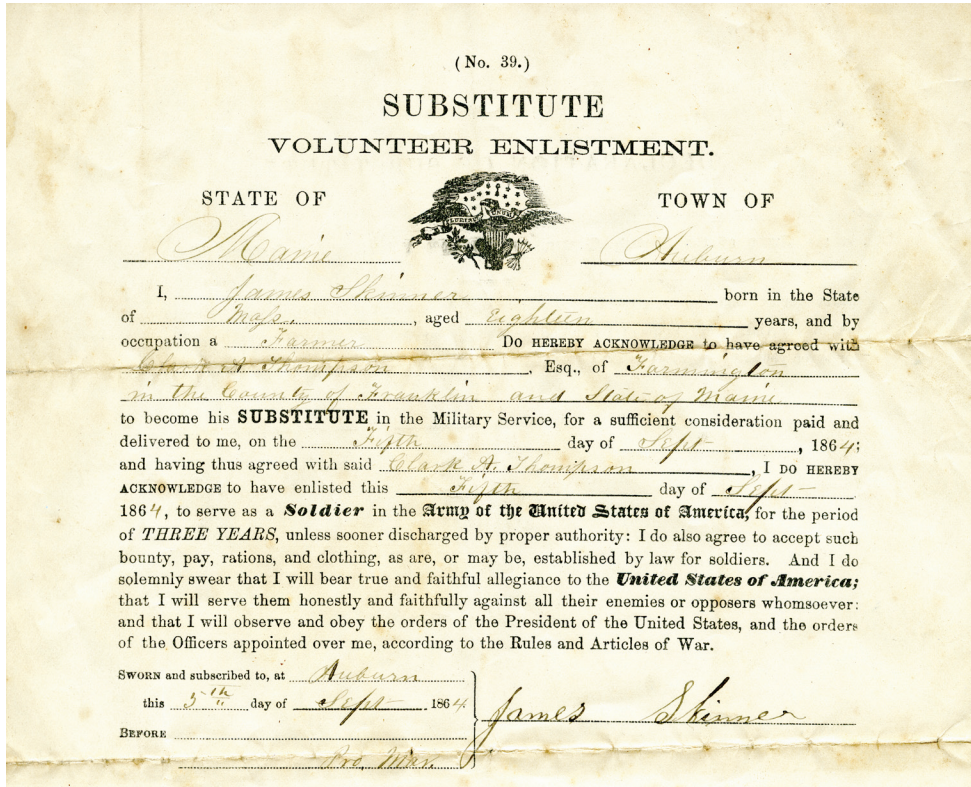 (No. 39.)
SUBSTITUTE
VOLUNTEER ENLISTMENT.
STATE OF TOWN OF
PLURIBUS UNUM
Maine Auburn
I, James Skinner born in the State
of Mass. , aged Eighteen years, and by
occupation a Farmer Do HEREBY ACKNOWLEDGE to have agreed with
Clark A Thompson , Esq., of Farmington
in the County of Franklin and State of Maine
to become his SUBSTITUTE in the Military Service, for a sufficient consideration paid and
delivered to me, on the Fifth day of Sept , 1864;
and having thus agreed with said Clark A. Thompson , I DO HEREBY
ACKNOWLEDGE to have enlisted this Fifth day of Sept
1864, to serve as a Soldier in the Army of the United States of America, for the period
of THREE YEARS, unless sooner discharged by proper authority: I do also agree to accept such
bounty, pay, rations, and clothing, as are, or may be, established by law for soldiers. And I do
solemnly swear that I will bear true and faithful allegiance to the United States of America;
that I will serve them honestly and faithfully against all their enemies or opposers whomsoever:
and that I will observe and obey the orders of the President of the United States, and the orders
of the Officers appointed over me, according to the Rules and Articles of War.
SWORN and subscribed to, at Auburn
this 5th day of Sept 1864
James Skinner
BEFORE
Pro. Mar.